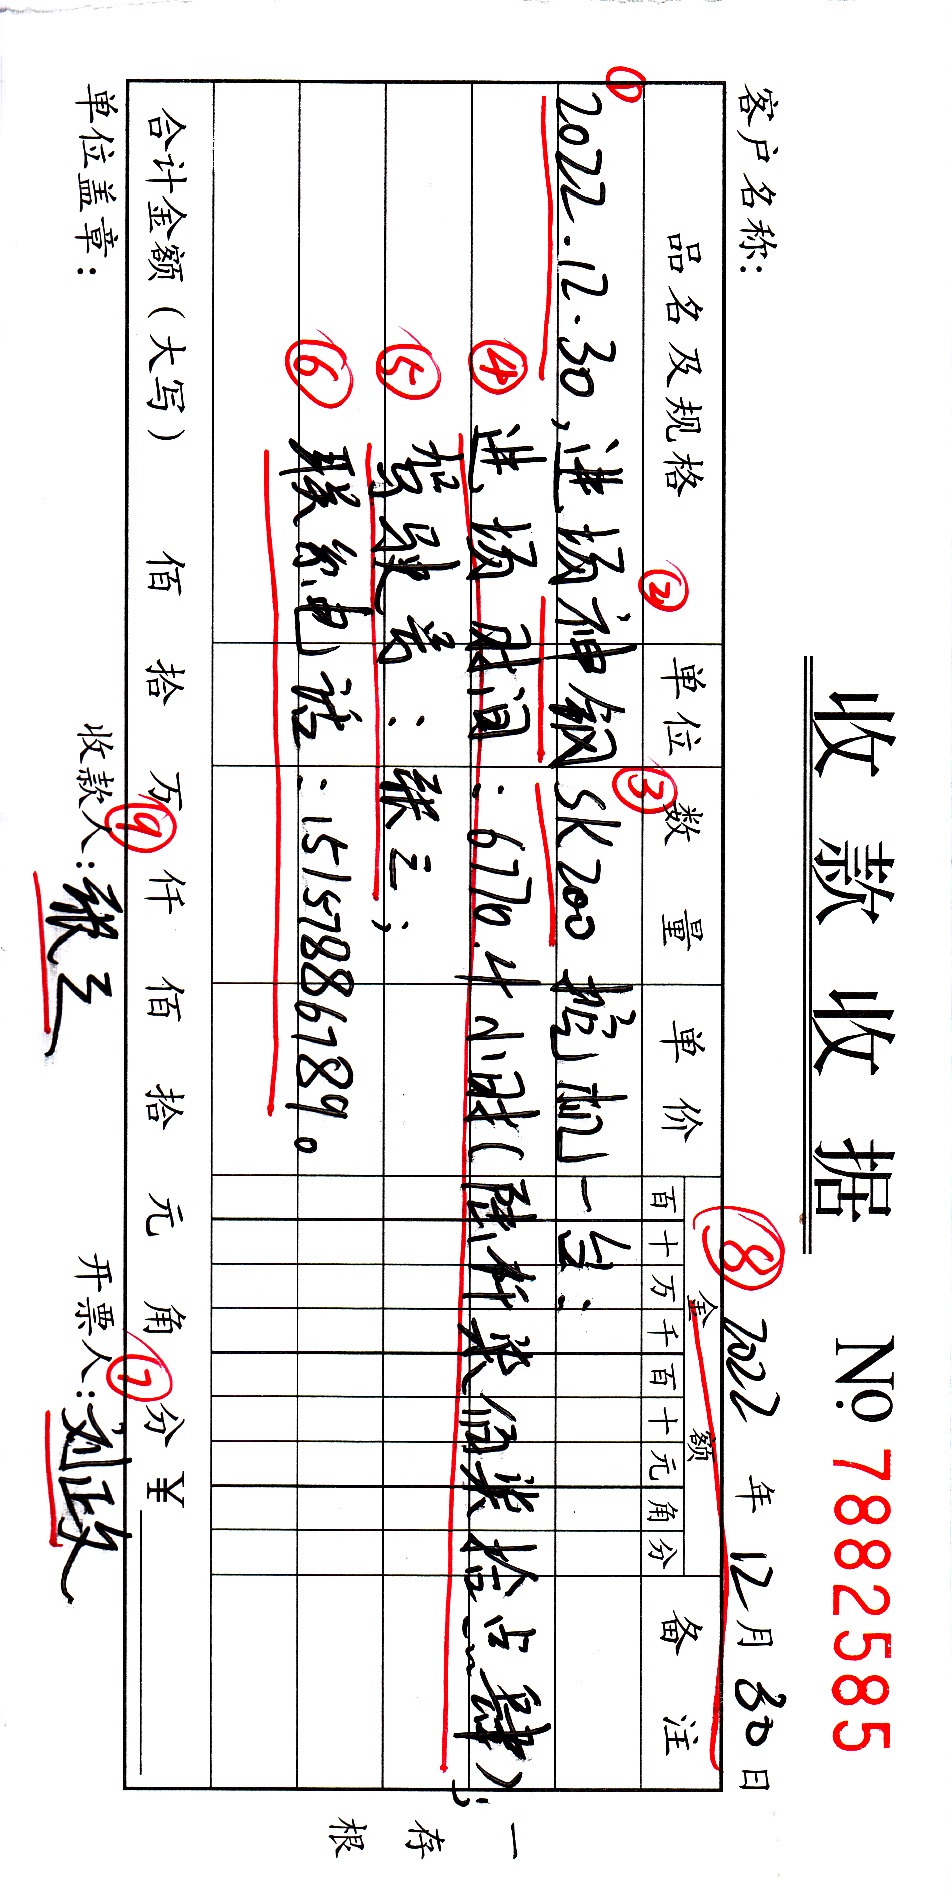 收款收据 No. 7882585
客户名称: ⑧ 2022 年 12 月 30 日
品名及规格 单位 数量 单价 金额 备注
百 十 万 千 百 十 元 角 分
① ② ③
2022.12.30,进场神钢SK200挖机一台:
④ 进场时间:6770.4小时(陆仟柒佰柒拾点肆);
⑤ 驾驶员:张三;
⑥ 联系电话:15157886789。
一存根
合计金额(大写) 佰 拾 万 仟 佰 拾 元 角 分 ¥
⑨ ⑦
单位盖章: 收款人:张三 开票人:刘正文